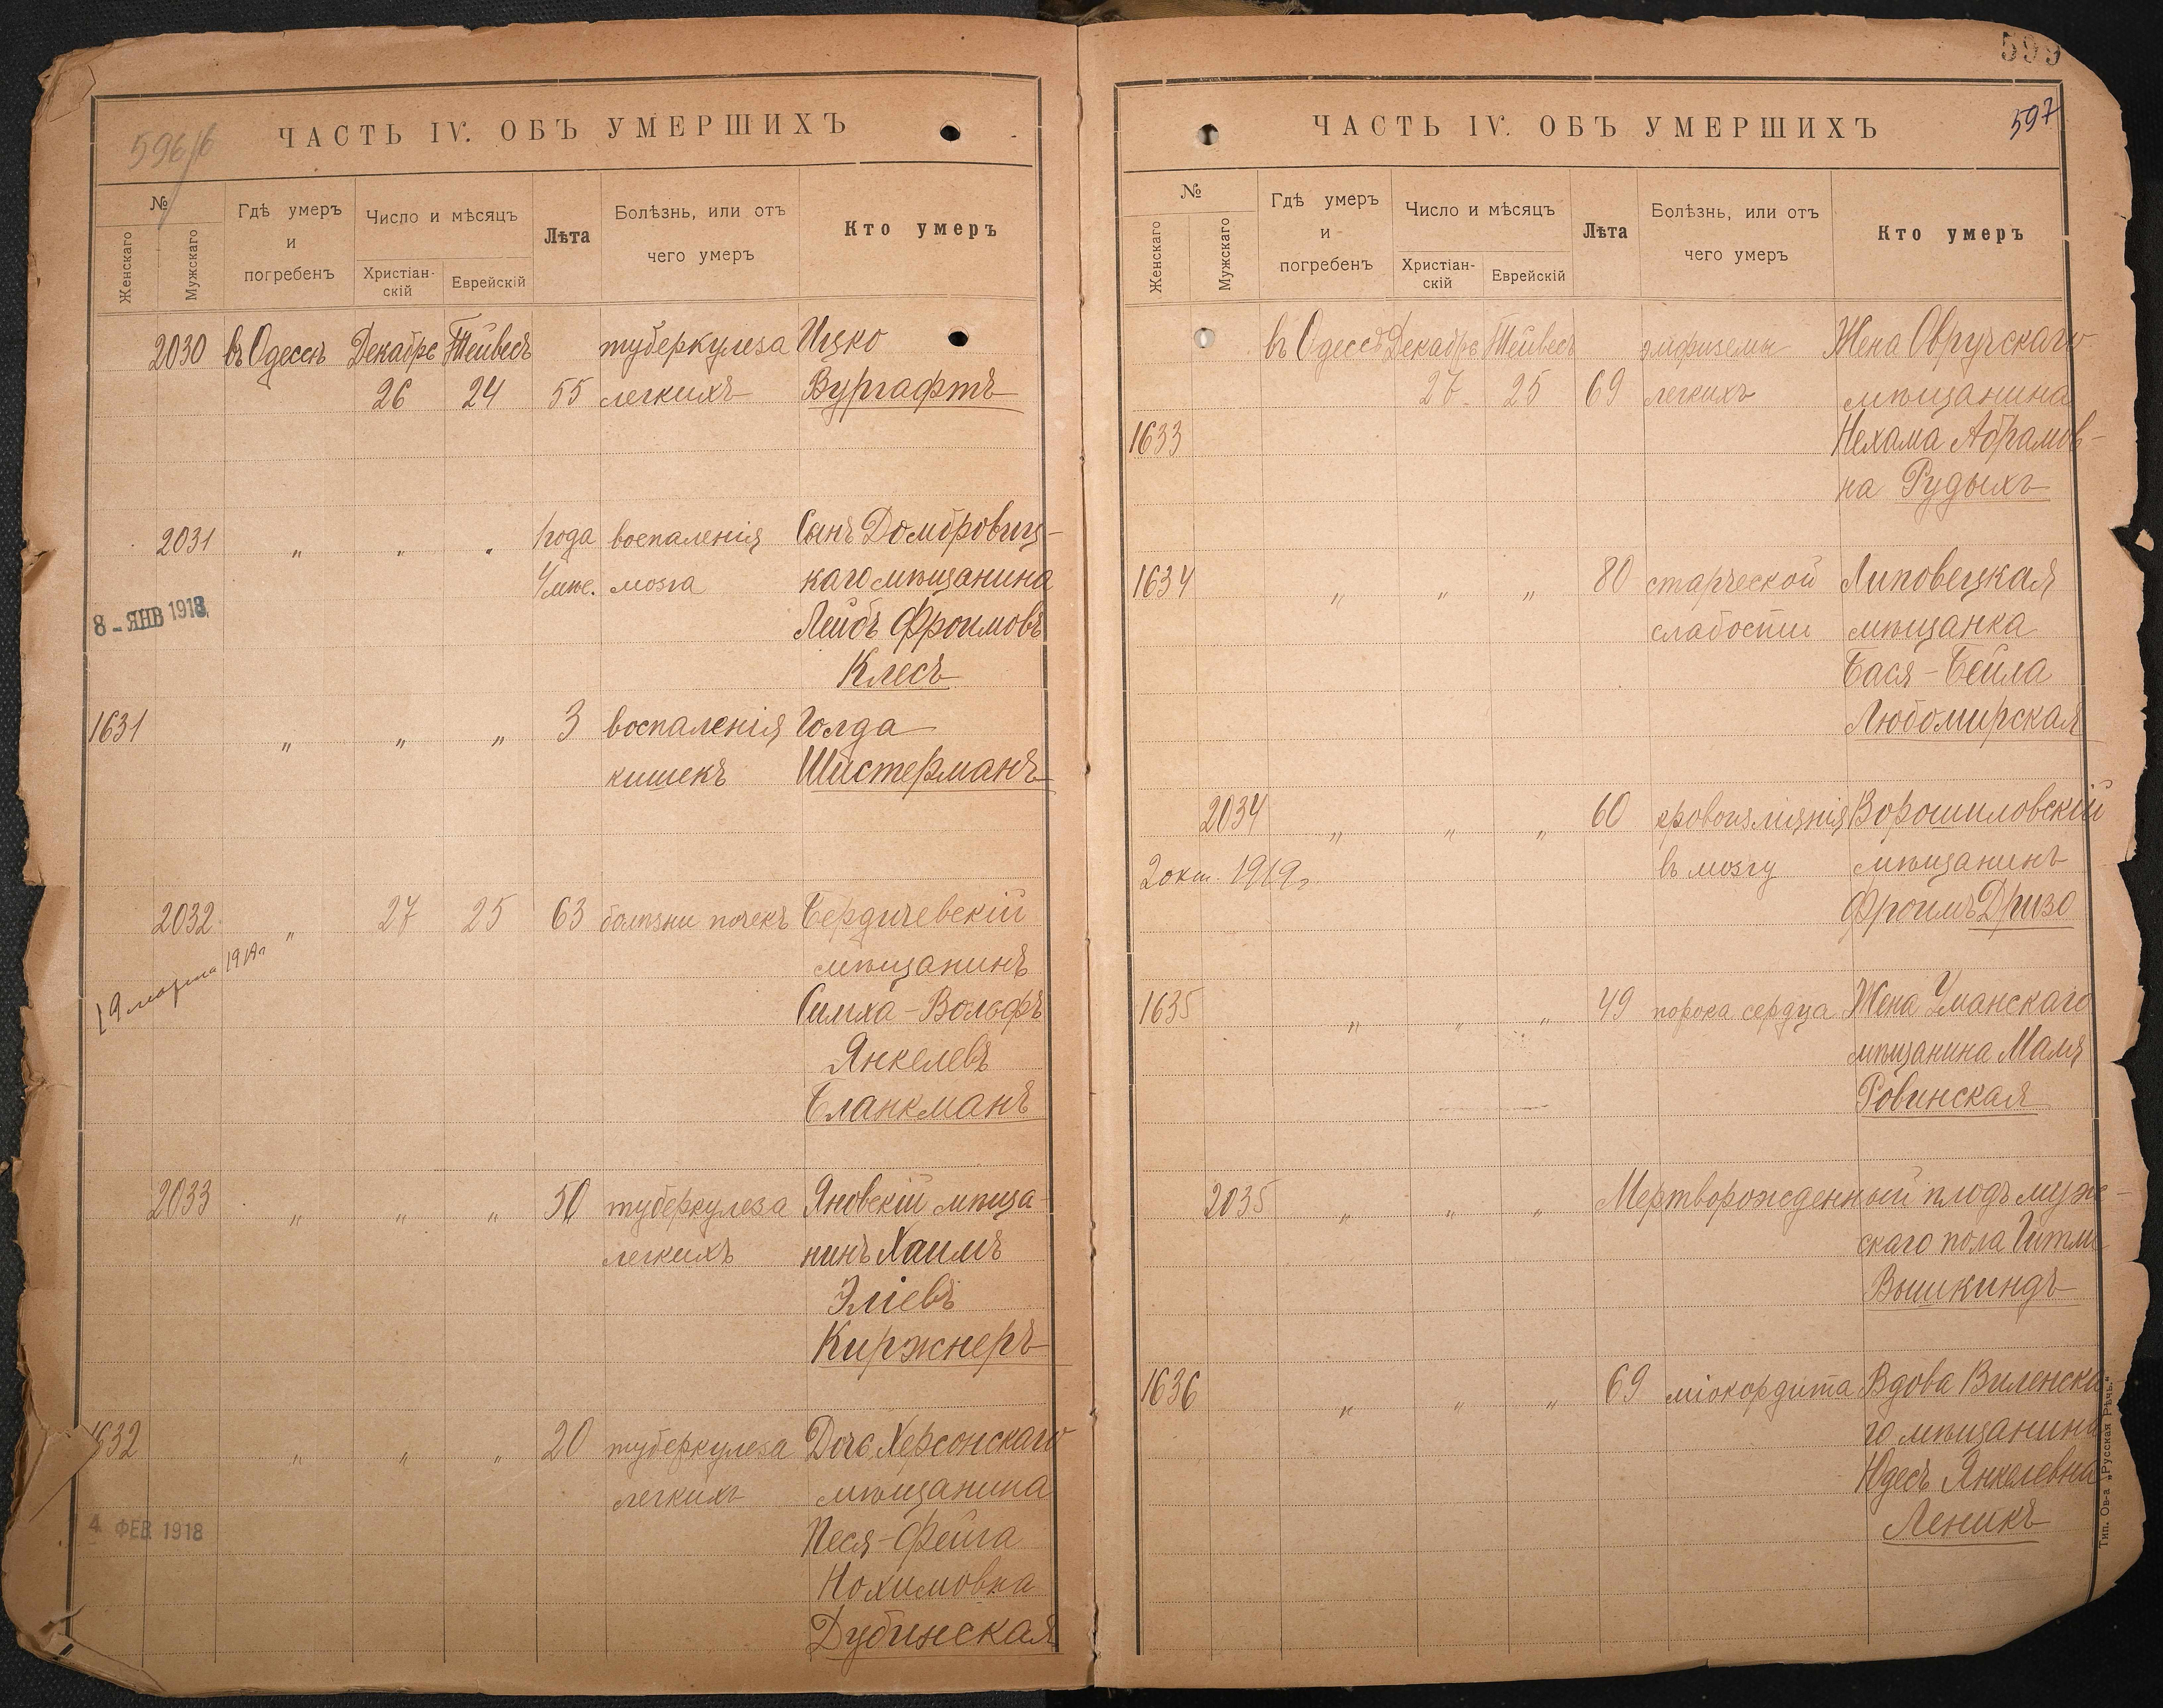 596/б
ЧАСТЬ IV. ОБЪ УМЕРШИХЪ
№
Женскаго
Мужскаго
Гдѣ умеръ
и
погребенъ
Число и мѣсяцъ
Христіан-
скій
Еврейскій
Лѣта
Болѣзнь, или отъ
чего умеръ
Кто умеръ
2030 въ Одессѣ Декабрь Тейвесъ туберкулеза Ицко
26 24 55 легкихъ Вургафтъ
2031 „ „ „ 1 года воспаленія Сынъ Домбровиц-
мѣс. мозга каго мѣщанина
8 - ЯНВ 1918
Лейбъ Фроимовъ
Клесъ
1631 „ „ „ 3 воспаленія Голда
кишекъ Шистерманъ
2032 „ 27 25 63 болѣзни почекъ Бердичевскій
19 марта 1919г
мѣщанинъ
Симха-Вольфъ
Янкелевъ
Бланкманъ
2033 „ „ „ 50 туберкулеза Яновскій мѣща-
легкихъ нинъ Хаимъ
Эліевъ
Киржнеръ
1632 „ „ „ 20 туберкулеза Дочь Херсонскаго
легкихъ мѣщанина
4 ФЕВ 1918
Песя-Фейга
Нохимовна
Дубинская
599
597
ЧАСТЬ IV. ОБЪ УМЕРШИХЪ
№
Женскаго
Мужскаго
Гдѣ умеръ
и
погребенъ
Число и мѣсяцъ
Христіан-
скій
Еврейскій
Лѣта
Болѣзнь, или отъ
чего умеръ
Кто умеръ
въ Одессѣ Декабрь Тейвесъ эмфиземы Жена Овручскаго
27 25 69 легкихъ мѣщанина
1633 Нехама Абрамов-
на Рудыхъ
1634 „ „ „ 80 старческой Липовецкая
слабости мѣщанка
Бася-Бейла
Любомирская
2034 „ „ „ 60 кровоизліянія Ворошиловскій
2 окт. 1919г въ мозгу мѣщанинъ
Фроимъ Дризо
1635 „ „ „ 49 порока сердца Жена Уманскаго
мѣщанина Маля
Ровинская
2035 „ „ „ Мертворожденный плодъ муж-
скаго пола Гитли
Вышкиндъ
1636 „ „ „ 69 міокордита Вдова Виленска-
го мѣщанина
Юдесъ Янкелевна
Леникъ
Тип. Ов-а „Русская Рѣчь.“